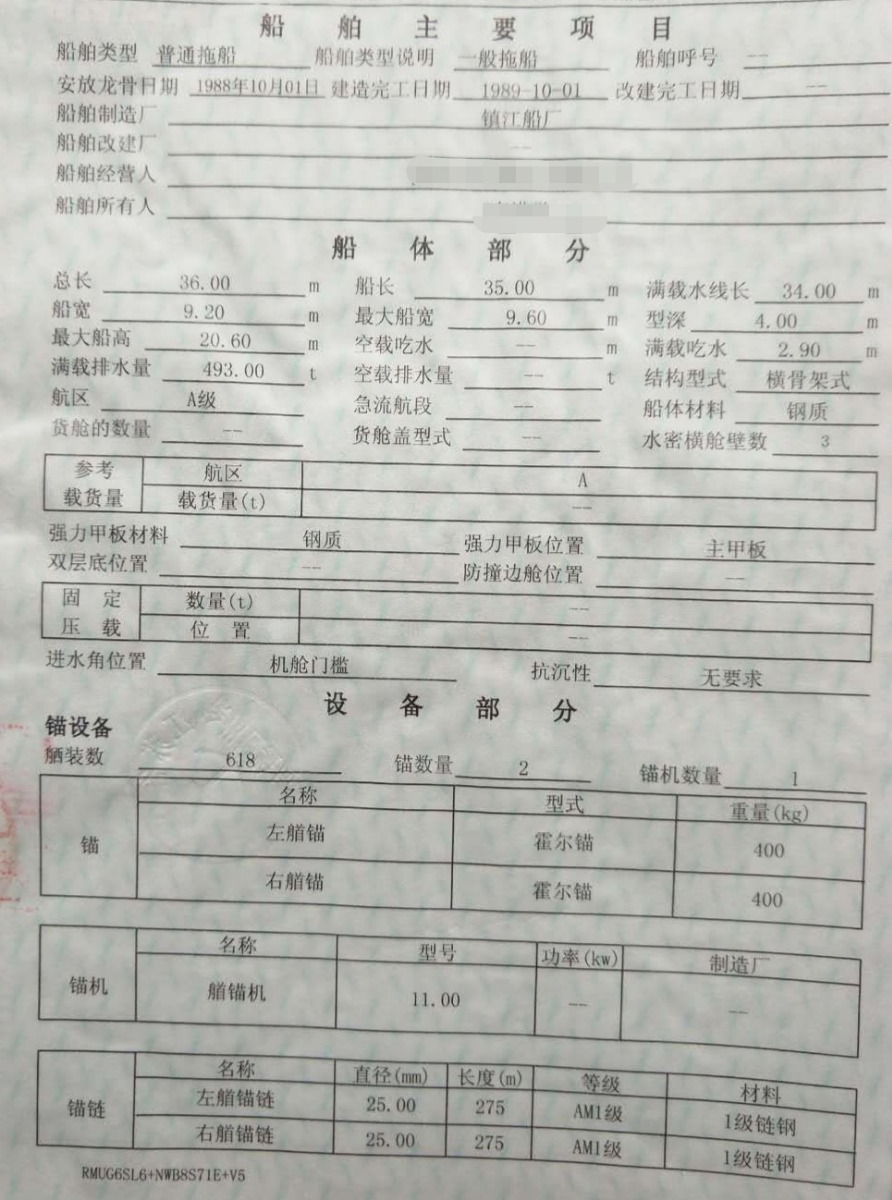 船舶主要项目
船舶类型 普通拖船 船舶类型说明 一般拖船 船舶呼号 --
安放龙骨日期 1988年10月01日 建造完工日期 1989-10-01 改建完工日期 --
船舶制造厂 镇江船厂
船舶改建厂 --
船舶经营人
船舶所有人
船体部分
总长 36.00 m 船长 35.00 m 满载水线长 34.00 m
船宽 9.20 m 最大船宽 9.60 m 型深 4.00 m
最大船高 20.60 m 空载吃水 -- m 满载吃水 2.90 m
满载排水量 493.00 t 空载排水量 -- t 结构型式 横骨架式
航区 A级 急流航段 -- 船体材料 钢质
货舱的数量 -- 货舱盖型式 -- 水密横舱壁数 3
参考载货量 航区 A
载货量(t) --
强力甲板材料 钢质 强力甲板位置 主甲板
双层底位置 -- 防撞边舱位置 --
固定压载 数量(t) --
位置 --
进水角位置 机舱门槛 抗沉性 无要求
设备部分
锚设备
舾装数 618 锚数量 2 锚机数量 1
锚 名称 型式 重量(kg)
左艏锚 霍尔锚 400
右艏锚 霍尔锚 400
锚机 名称 型号 功率(kw) 制造厂
艏锚机 11.00 -- --
锚链 名称 直径(mm) 长度(m) 等级 材料
左艏锚链 25.00 275 AM1级 1级链钢
右艏锚链 25.00 275 AM1级 1级链钢
RMUG6SL6+NWB8S71E+V5